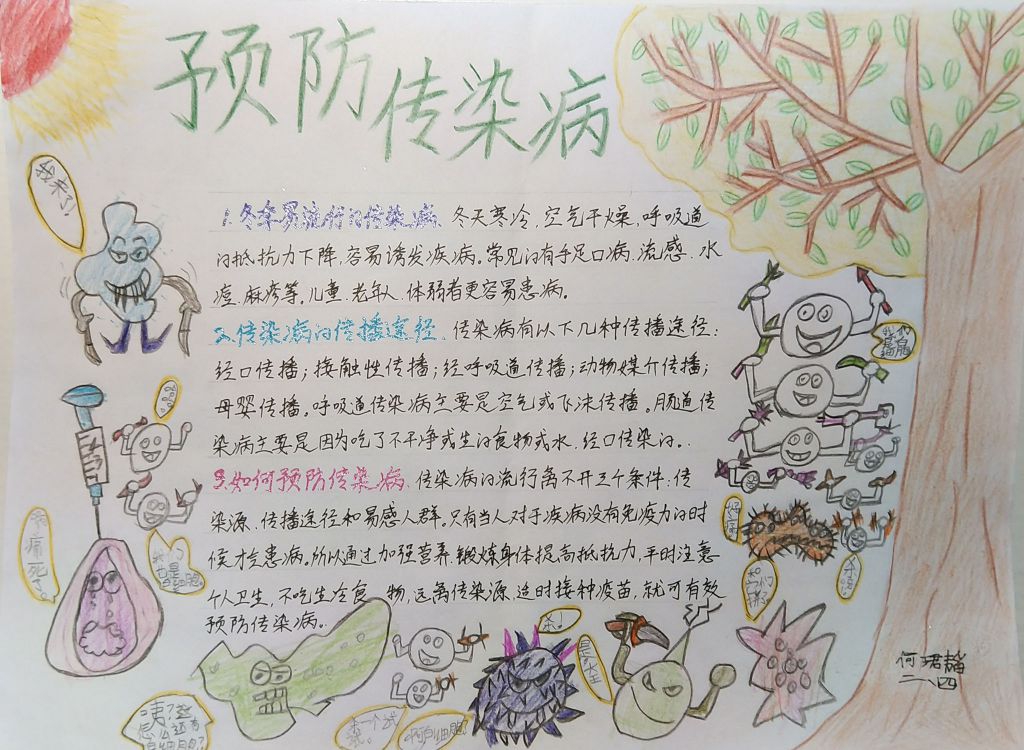 预防传染病
我来了!
1.冬季易流行的传染病. 冬天寒冷,空气干燥,呼吸道
的抵抗力下降,容易诱发疾病。常见的有手足口病.流感.水
痘.麻疹等。儿童.老年人.体弱者更容易患病。
2.传染病的传播途径. 传染病有以下几种传播途径:
经口传播;接触性传播;经呼吸道传播;动物媒介传播;
母婴传播。呼吸道传染病主要是空气或飞沫传播。肠道传
染病主要是因为吃了不干净或生的食物或水.经口传染的。
3.如何预防传染病. 传染病的流行离不开三个条件:传
染源.传播途径和易感人群。只有当人对于疾病没有免疫力的时
候才会患病。所以通过加强营养.锻炼身体提高抵抗力,平时注意
个人卫生,不吃生冷食物,远离传染源.适时接种疫苗,就可有效
预防传染病。
我们
是白
细胞
痛
死了。
我们
是
细胞
杀!
何珺韬
二、四